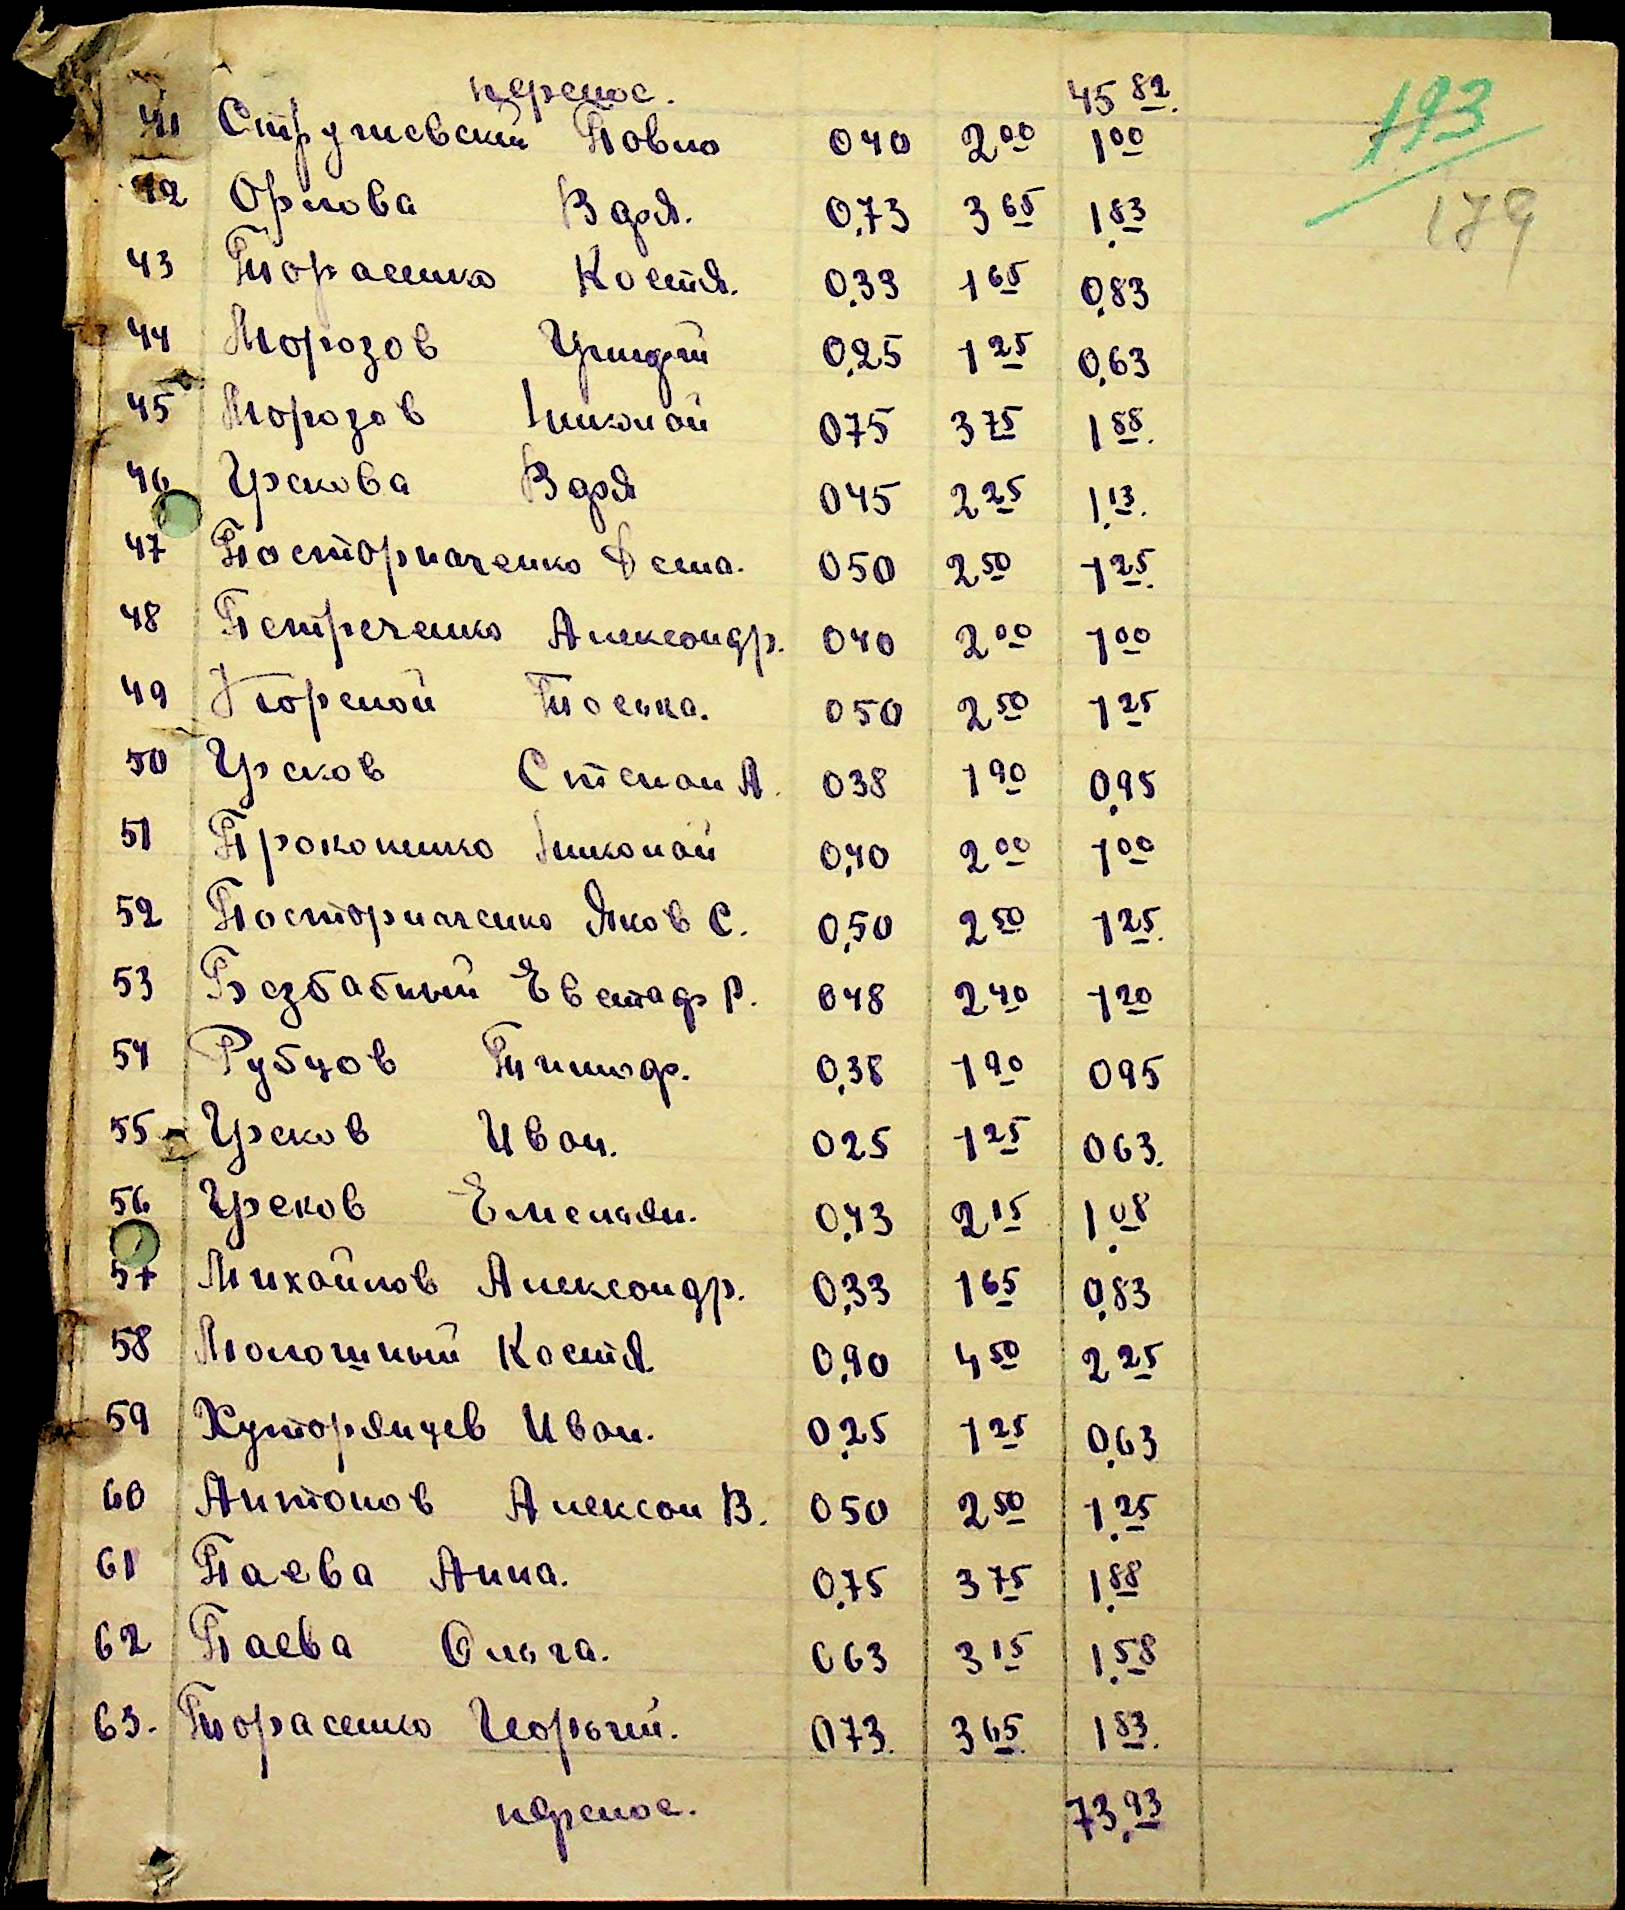 перенос. 45 82.
193
179
41 Стружевский Повло 040 2 00 1 00
42 Орлова Вфря. 0,73 3 65 1,83
43 Торасенко Костя. 0,33 1 65 0,83
44 Морозов 0,25 1 25 0,63
45 Морозов Николой 075 3 75 1 88.
46 Урскова Вфря 045 2 25 1,13.
47 Посторначенко Дема. 050 2 50 1 25.
48 Петреченко Александр. 040 2 00 1 00
49 Тоська. 050 2 50 1 25
50 Урсков Степон А. 038 1 90 0,95
51 Прокопенко Николой 0,40 2 00 1 00
52 Посторначенко Яков С. 0,50 2 50 1 25.
53 Безбабный Евстаф Р. 048 2 40 1 20
54 Рубцов Тимоф. 0,38 1 90 095
55 Урсков Ивон. 025 1 25 063.
56 Урсков Емельян. 0,43 2 15 1,08
57 Михойлов Александр. 0,33 1 65 0,83
58 Молошный Костя 0,90 4 50 2 25
59 Хуторянцев Ивон. 0,25 1 25 0,63
60 Антонов Алексон В. 050 2 50 1,25
61 Паева Анна. 0,75 3 75 1,88
62 Паева Ольга. 063 3 15 1,58
63. Торасенко Георгий. 073. 3 65. 1 83.
перенос. 73,93